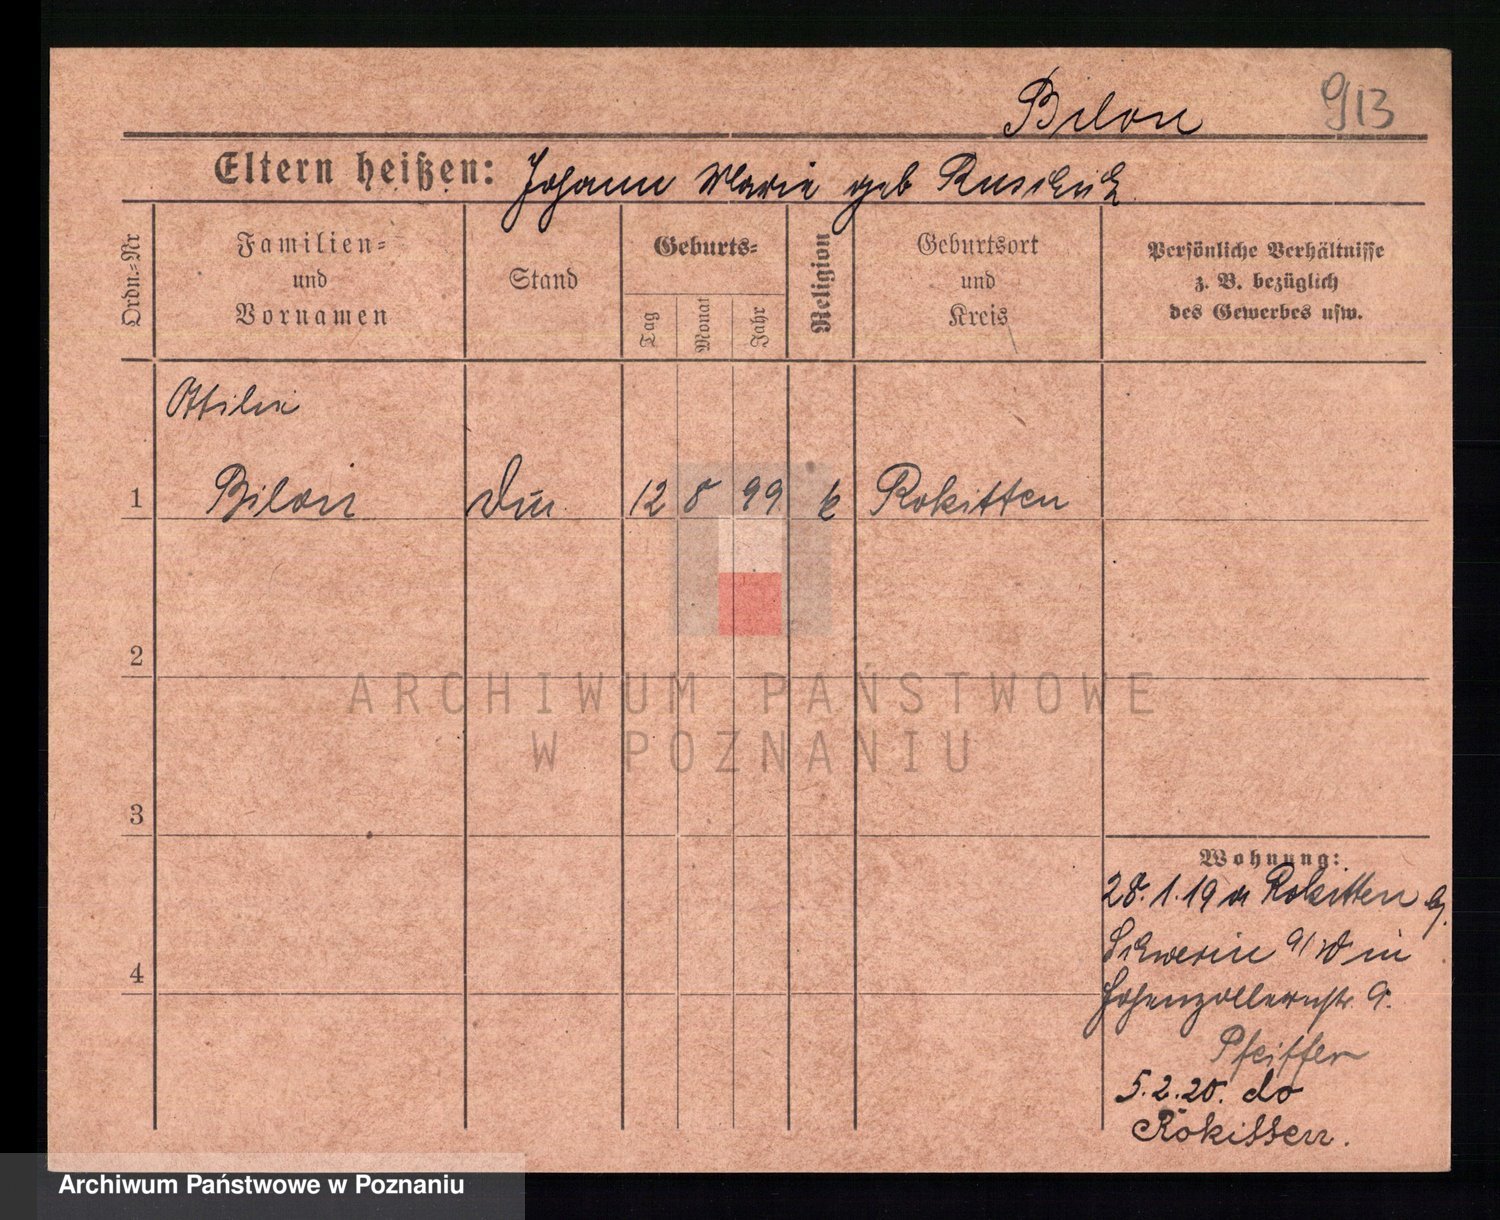 Bilon 913
Eltern heißen: Johann Marie geb
Ordn.-Nr
Familien-
und
Vornamen
Stand
Geburts-
Tag
Monat
Jahr
Religion
Geburtsort
und
Kreis
Persönliche Verhältnisse
z. B. bezüglich
des Gewerbes usw.
Ottilie
1 Bilon 12 8 99 k Rokitten
2
ARCHIWUM PAŃSTWOWE
W POZNANIU
3
4
Wohnung:
28.1.19 Rokitten
Schwerin a/W in
Hohenzollernstr. 9.
Pfeiffer
5.2.20. do
Rokitten.
Archiwum Państwowe w Poznaniu